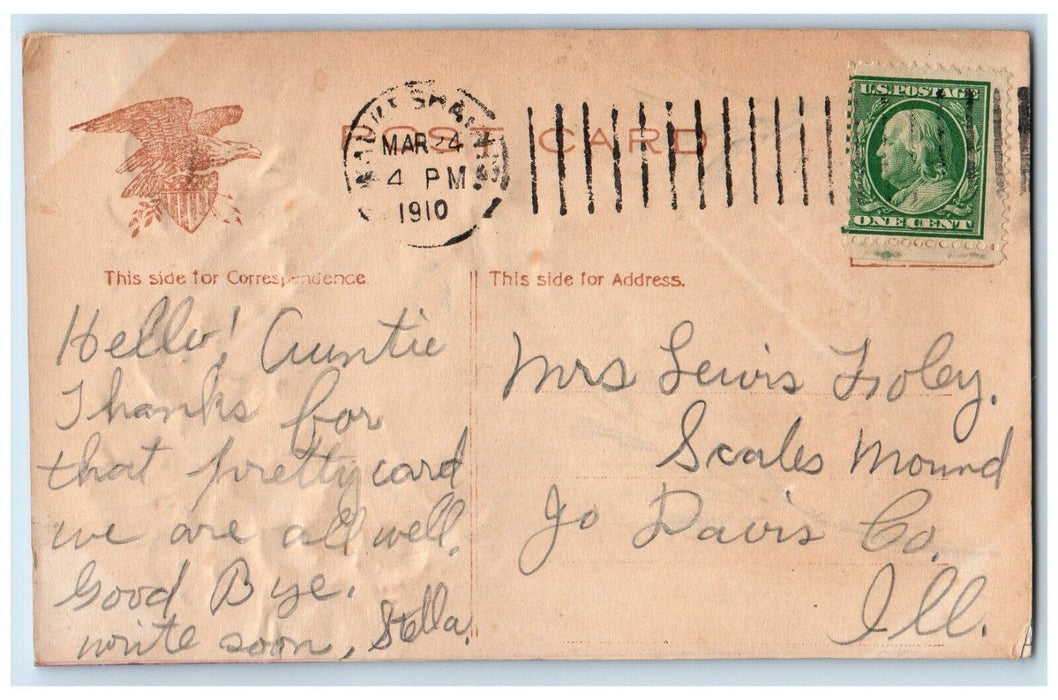 POST CARD
WAUKESHA, WIS.
MAR 24
4 PM
1910
U.S. POSTAGE
ONE CENT
This side for Correspondence.
This side for Address.
Hello! Auntie
Thanks for
that pretty card
we are all well.
Good Bye.
write soon, Stella.
Mrs Lewis Foley.
Scales Mound
Jo Davis Co.
Ill.